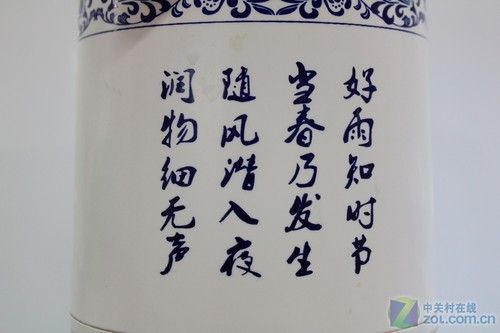 好雨知时节
当春乃发生
随风潜入夜
润物细无声
中关村在线
zol.com.cn